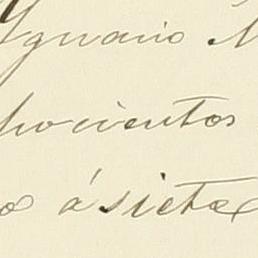 Ygnacio M
hocientos
o á siete